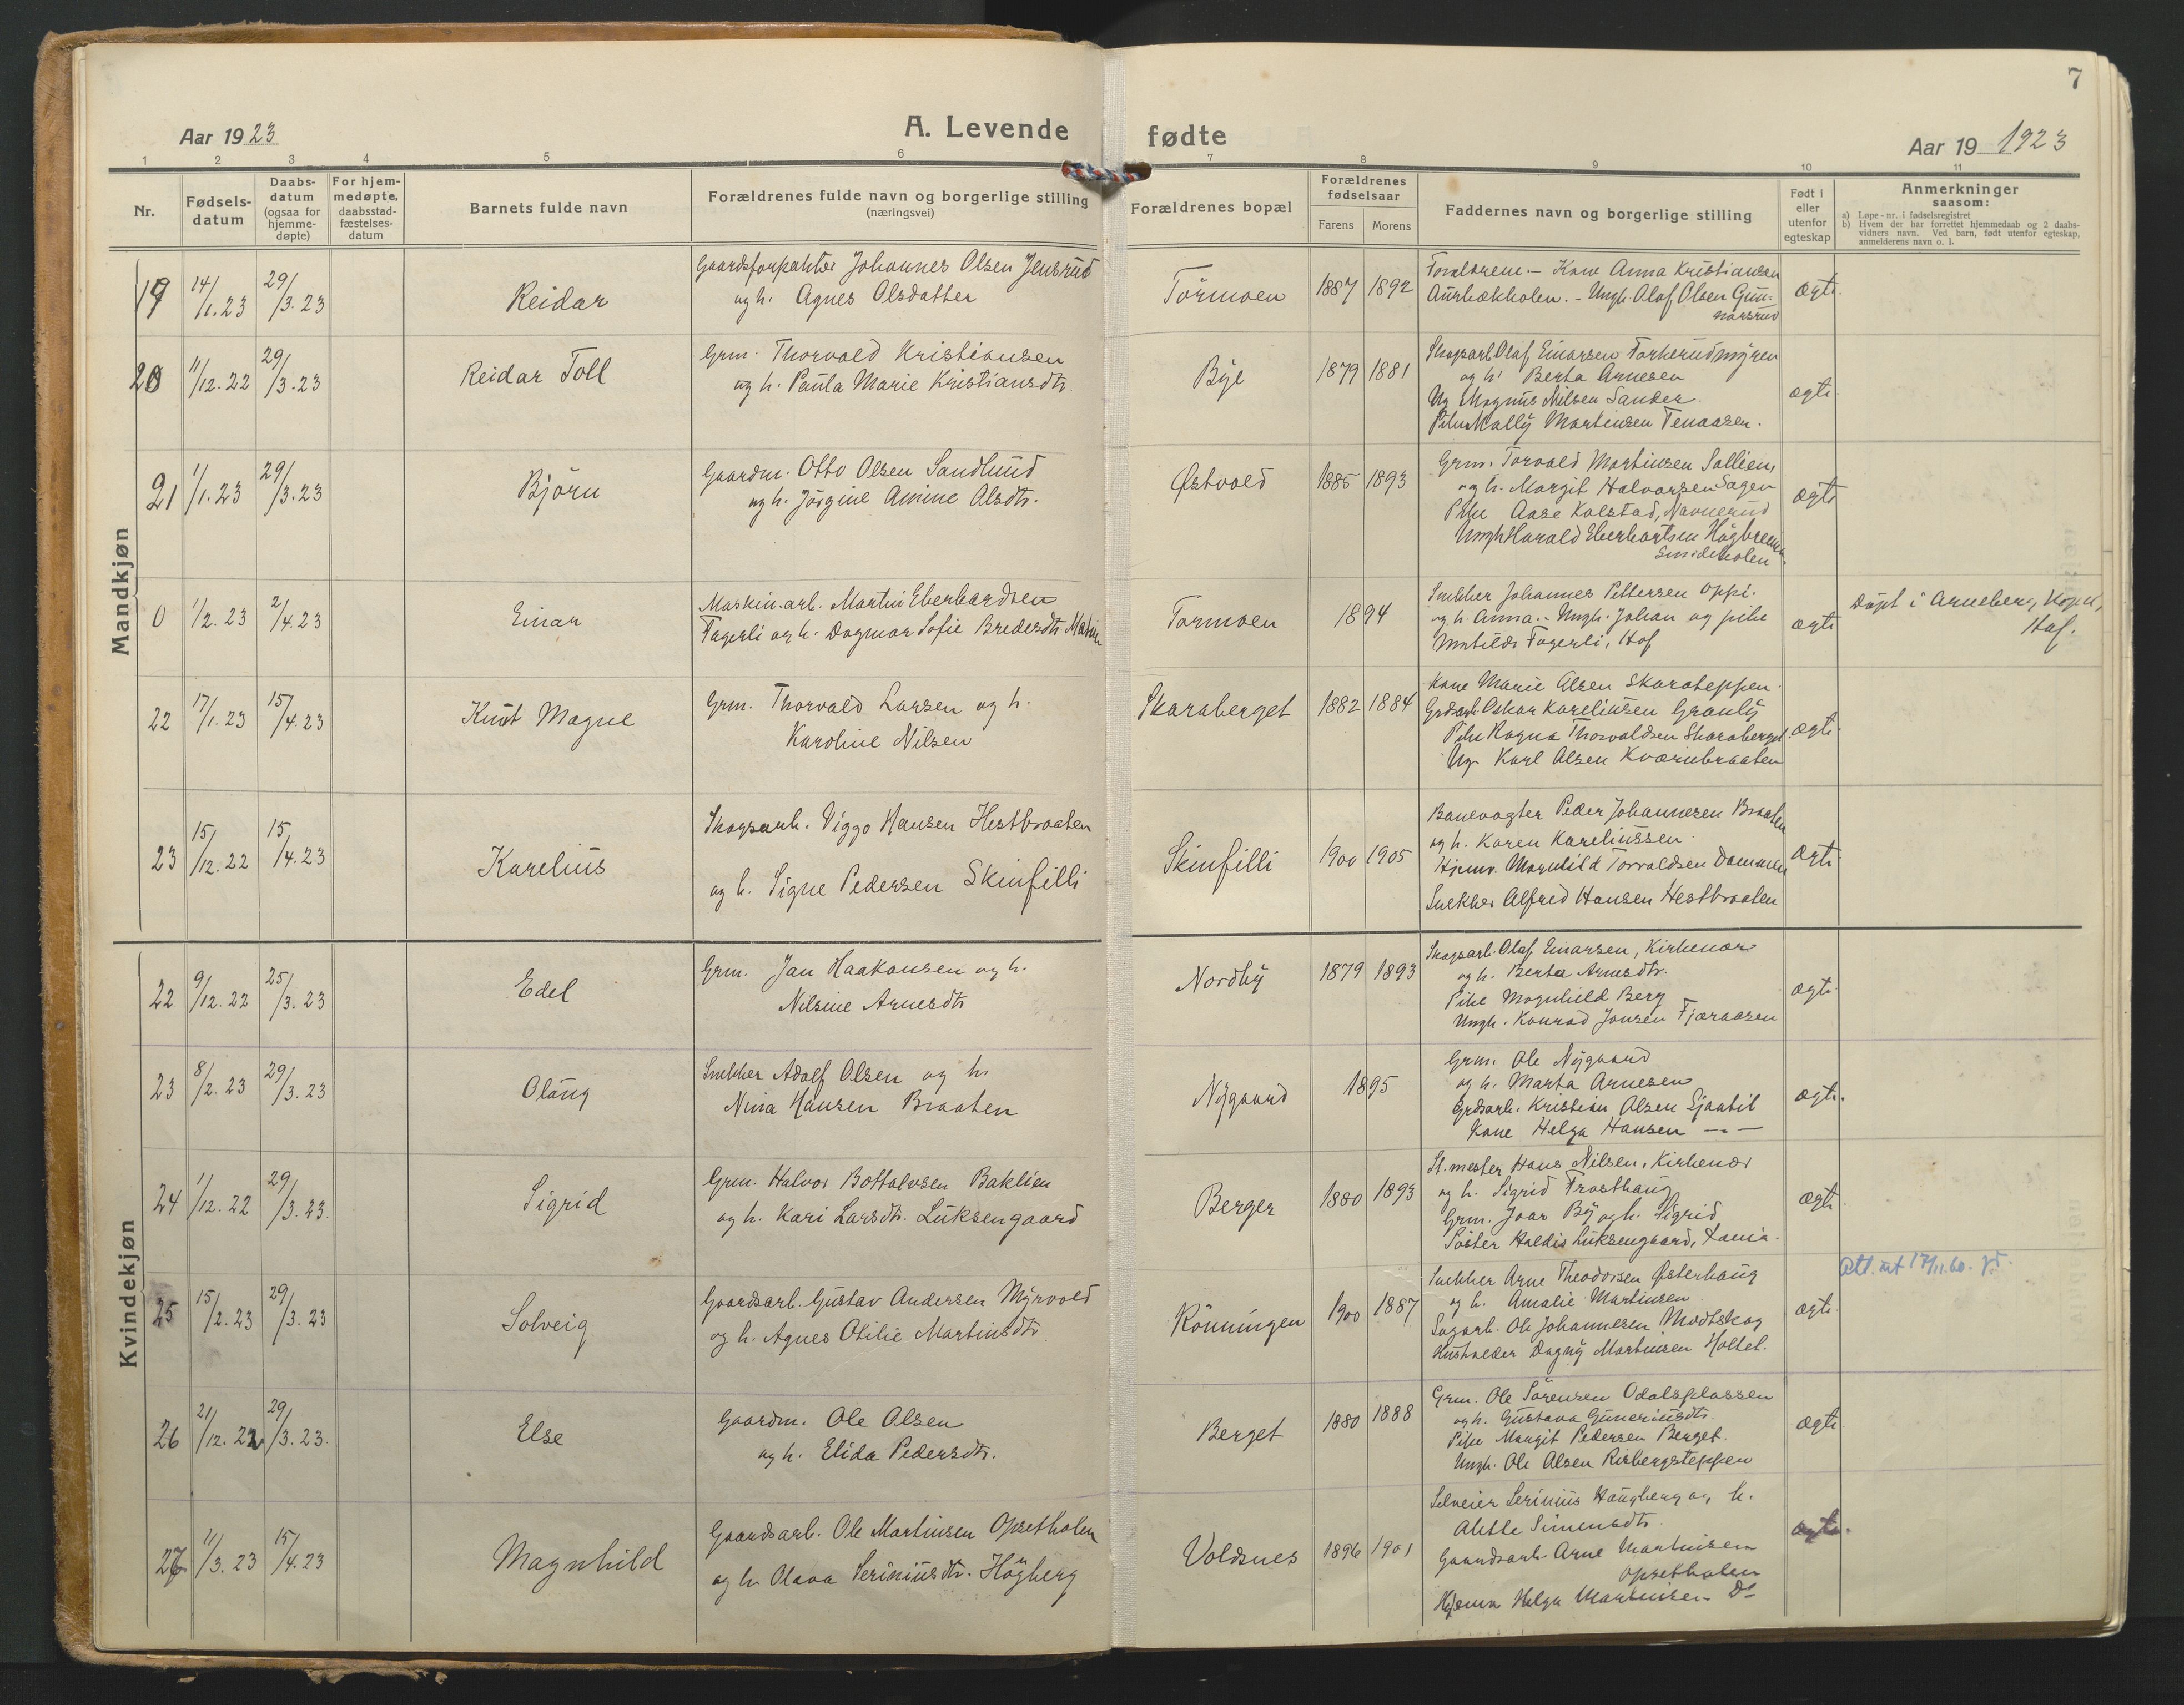 7
Aar 1923
A. Levende
fødte
Aar 19 1923
1 2 3 4 5 6 7 8 9 10 11
Nr.
Fødsels-
datum
Daabs-
datum
(ogsaa for
hjemme-
døpte)
For hjem-
medøpte,
daabsstad-
fæstelses-
datum
Barnets fulde navn
Forældrenes fulde navn og borgerlige stilling
(næringsvei)
Forældrenes bopæl
Forældrenes
fødselsaar
Farens Morens
Faddernes navn og borgerlige stilling
Født i
eller
utenfor
egteskap
Anmerkninger
saasom:
a) Løpe-nr. i fødselsregistret
b) Hvem der har forrettet hjemmedaab og 2 daabs-
vidners navn. Ved barn, født utenfor egteskap,
anmelderens navn o. l.
Mandkjøn
19 14/1.23 29/3.23 Reidar
Gaardsforpakter Johannes Olsen Jensrud
og h. Agnes Olsdatter
Törmoen 1887 1892
Forældrene. - Kone Anna Kristiansen
Aurbækholen. - Ungk. Olaf Olsen Gun-
narsrud
ægte.
20 11/12.22 29/3.23 Reidar Toll
Grm. Thorvald Kristiansen
og h. Paula Marie Kristiansdtr.
Bye 1879 1881
Skogsarb. Olaf Einarsen Torkerudmyren
og h. Berta Arnesen
Ug. Magnus Nilsen Sander.
Pike Mally Martinsen Tenaasen.
ægte.
21 1/1.23 29/3.23 Björn
Gaardm. Otto Olsen Sandlund
og h. Jörgine Amine Olsdtr.
Østvold 1885 1893
Grm. Torvald Martinsen Sollien,
og h. Margit Halvorsen Sagen
Pike Aase Kolstad, Navnerud
Ungk Harald Eberhartsen Högbrenna
Smideholen.
ægte
0 1/2.23 2/4.23 Einar
Maskin.arb. Martin Eberhardsen
Fagerli og h. Dagmar Sofie Bredesdtr.
Tormoen 1894
Snekker Johannes Pettersen Oppi.
og h. Anna. - Ungk. Johan og pike
Matilde Fagerli, Hof
ægte
Döpt i Arneberg Kapel,
Hof.
22 17/1.23 15/4.23 Knut Magne
Grm. Thorvald Larsen og h.
Karoline Nilsen
Skaraberget 1882 1884
Kone Marie Olsen Skarateppen.
Grdsarb. Oskar Kareliusen Granly
Pike Ragna Thorvaldsen Skaraberget
Ug. Karl Olsen Kværnbraaten
ægte.
23 15/12.22 15/4.23 Karelius
Skogsarb. Viggo Hansen Hestbraaten
og h. Signe Pedersen Skinfilli
Skinfilli 1900 1905
Banevogter Peder Johannesen Braaten
og h. Karen Kareliussen.
Hjemv. Magnhild Torvaldsen Dammen
Snekker Alfred Hansen Hestbraaten
ægte
Kvindekjøn
22 9/12.22 25/3.23 Edel
Grm. Jan Haakonsen og h.
Nilsine Arnesdtr
Nordby 1879 1893
Skogsarb. Olaf Einarsen, Kirkenær
og h. Berta Arnesdtr.
Pike Magnhild Berg
Ungk. Konrad Jonsen Fjæraasen
ægte.
23 8/2.23 29/3.23 Olaug
Snekker Adolf Olsen og h.
Nina Hansen Braaten
Nygaard 1895
Grm. Ole Nygaard
og h. Marta Arnesen
Grdsarb. Kristian Olsen Sjaatil
Kone Helga Hansen -„-
ægte.
24 1/12.22 29/3.23. Sigrid
Grm. Halvor Bottolvsen Baklien
og h. Kari Larsdtr. Luksengaard
Berger 1880 1893
St.mester Hans Nilsen, Kirkenær
og h. Sigrid Frosthaug
Grm. Joar By og h. Sigrid
Söster Haldis Luksengaard,
ægte.
25 15/2.23 29/3.23 Solveig
Gaardsarb. Gustav Andersen Myrvold
og h. Agnes Otilie Martinsdtr.
Rönningen 1900 1887
Snekker Arne Theodorsen Østerhaug
og h. Amalie Martinsen
Sagarb. Ole Johannesen Modtskog
Husholder Dagny Martinsen Holtet.
ægte.
Att. utt 17/11.60.
26 21/12.22 29/3.23. Else
Gaardm. Ole Olsen
og h. Elida Pedersdtr.
Berget 1880 1888
Grm. Ole Sörensen Odalsplassen
og h. Gustava Guneriusdtr.
Pike Margit Pedersen Berget.
Ungk. Ole Olsen Risbergsteppen
ægte
27 11/3.23 15/4.23 Magnhild
Gaardsarb. Ole Martinsen Opsetholen
og h. Olava Seriniusdtr. Högberg
Voldsnes 1896 1901
Selveier Serinius Haugberg og h.
Alette Simensdtr.
Gaardsarb. Arne Martinsen
Opsetholen
Hjemv Helga Martinsen Do
ægte.